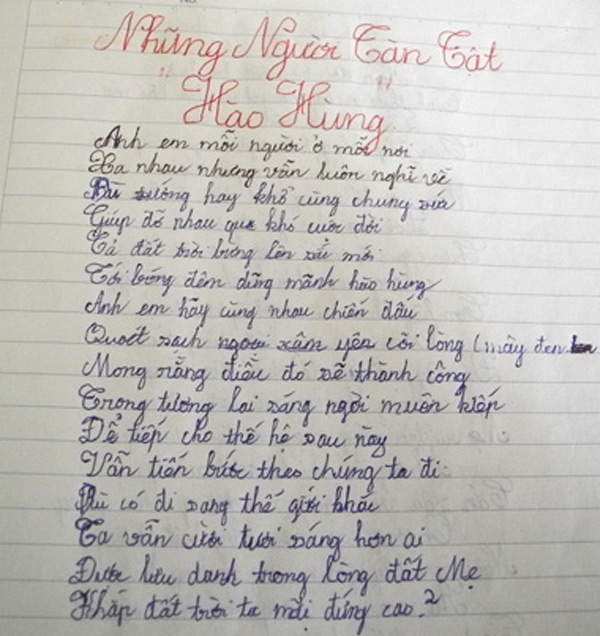 Những Người Tàn Tật
"Hào Hùng"
Anh em mỗi người ở mỗi nơi
Xa nhau nhưng vẫn luôn nghĩ về
Dù sướng hay khổ cùng chung sức
Giúp đỡ nhau qua khó cuộc đời
Cả đất trời bừng lên sắc mới
Tới bóng đêm dũng mãnh hào hùng
Anh em hãy cùng nhau chiến đấu
Quét sạch ngoại xâm yên cõi lòng (mây đen
Mong rằng điều đó sẽ thành công
Trong tương lai sáng ngời muôn kiếp
Để tiếp cho thế hệ sau này
Vẫn tiến bước theo chúng ta đi
Dù có đi sang thế giới khác
Ta vẫn cười tươi sáng hơn ai
Được lưu danh trong lòng đất Mẹ
Khắp đất trời ta mãi đứng cao.2